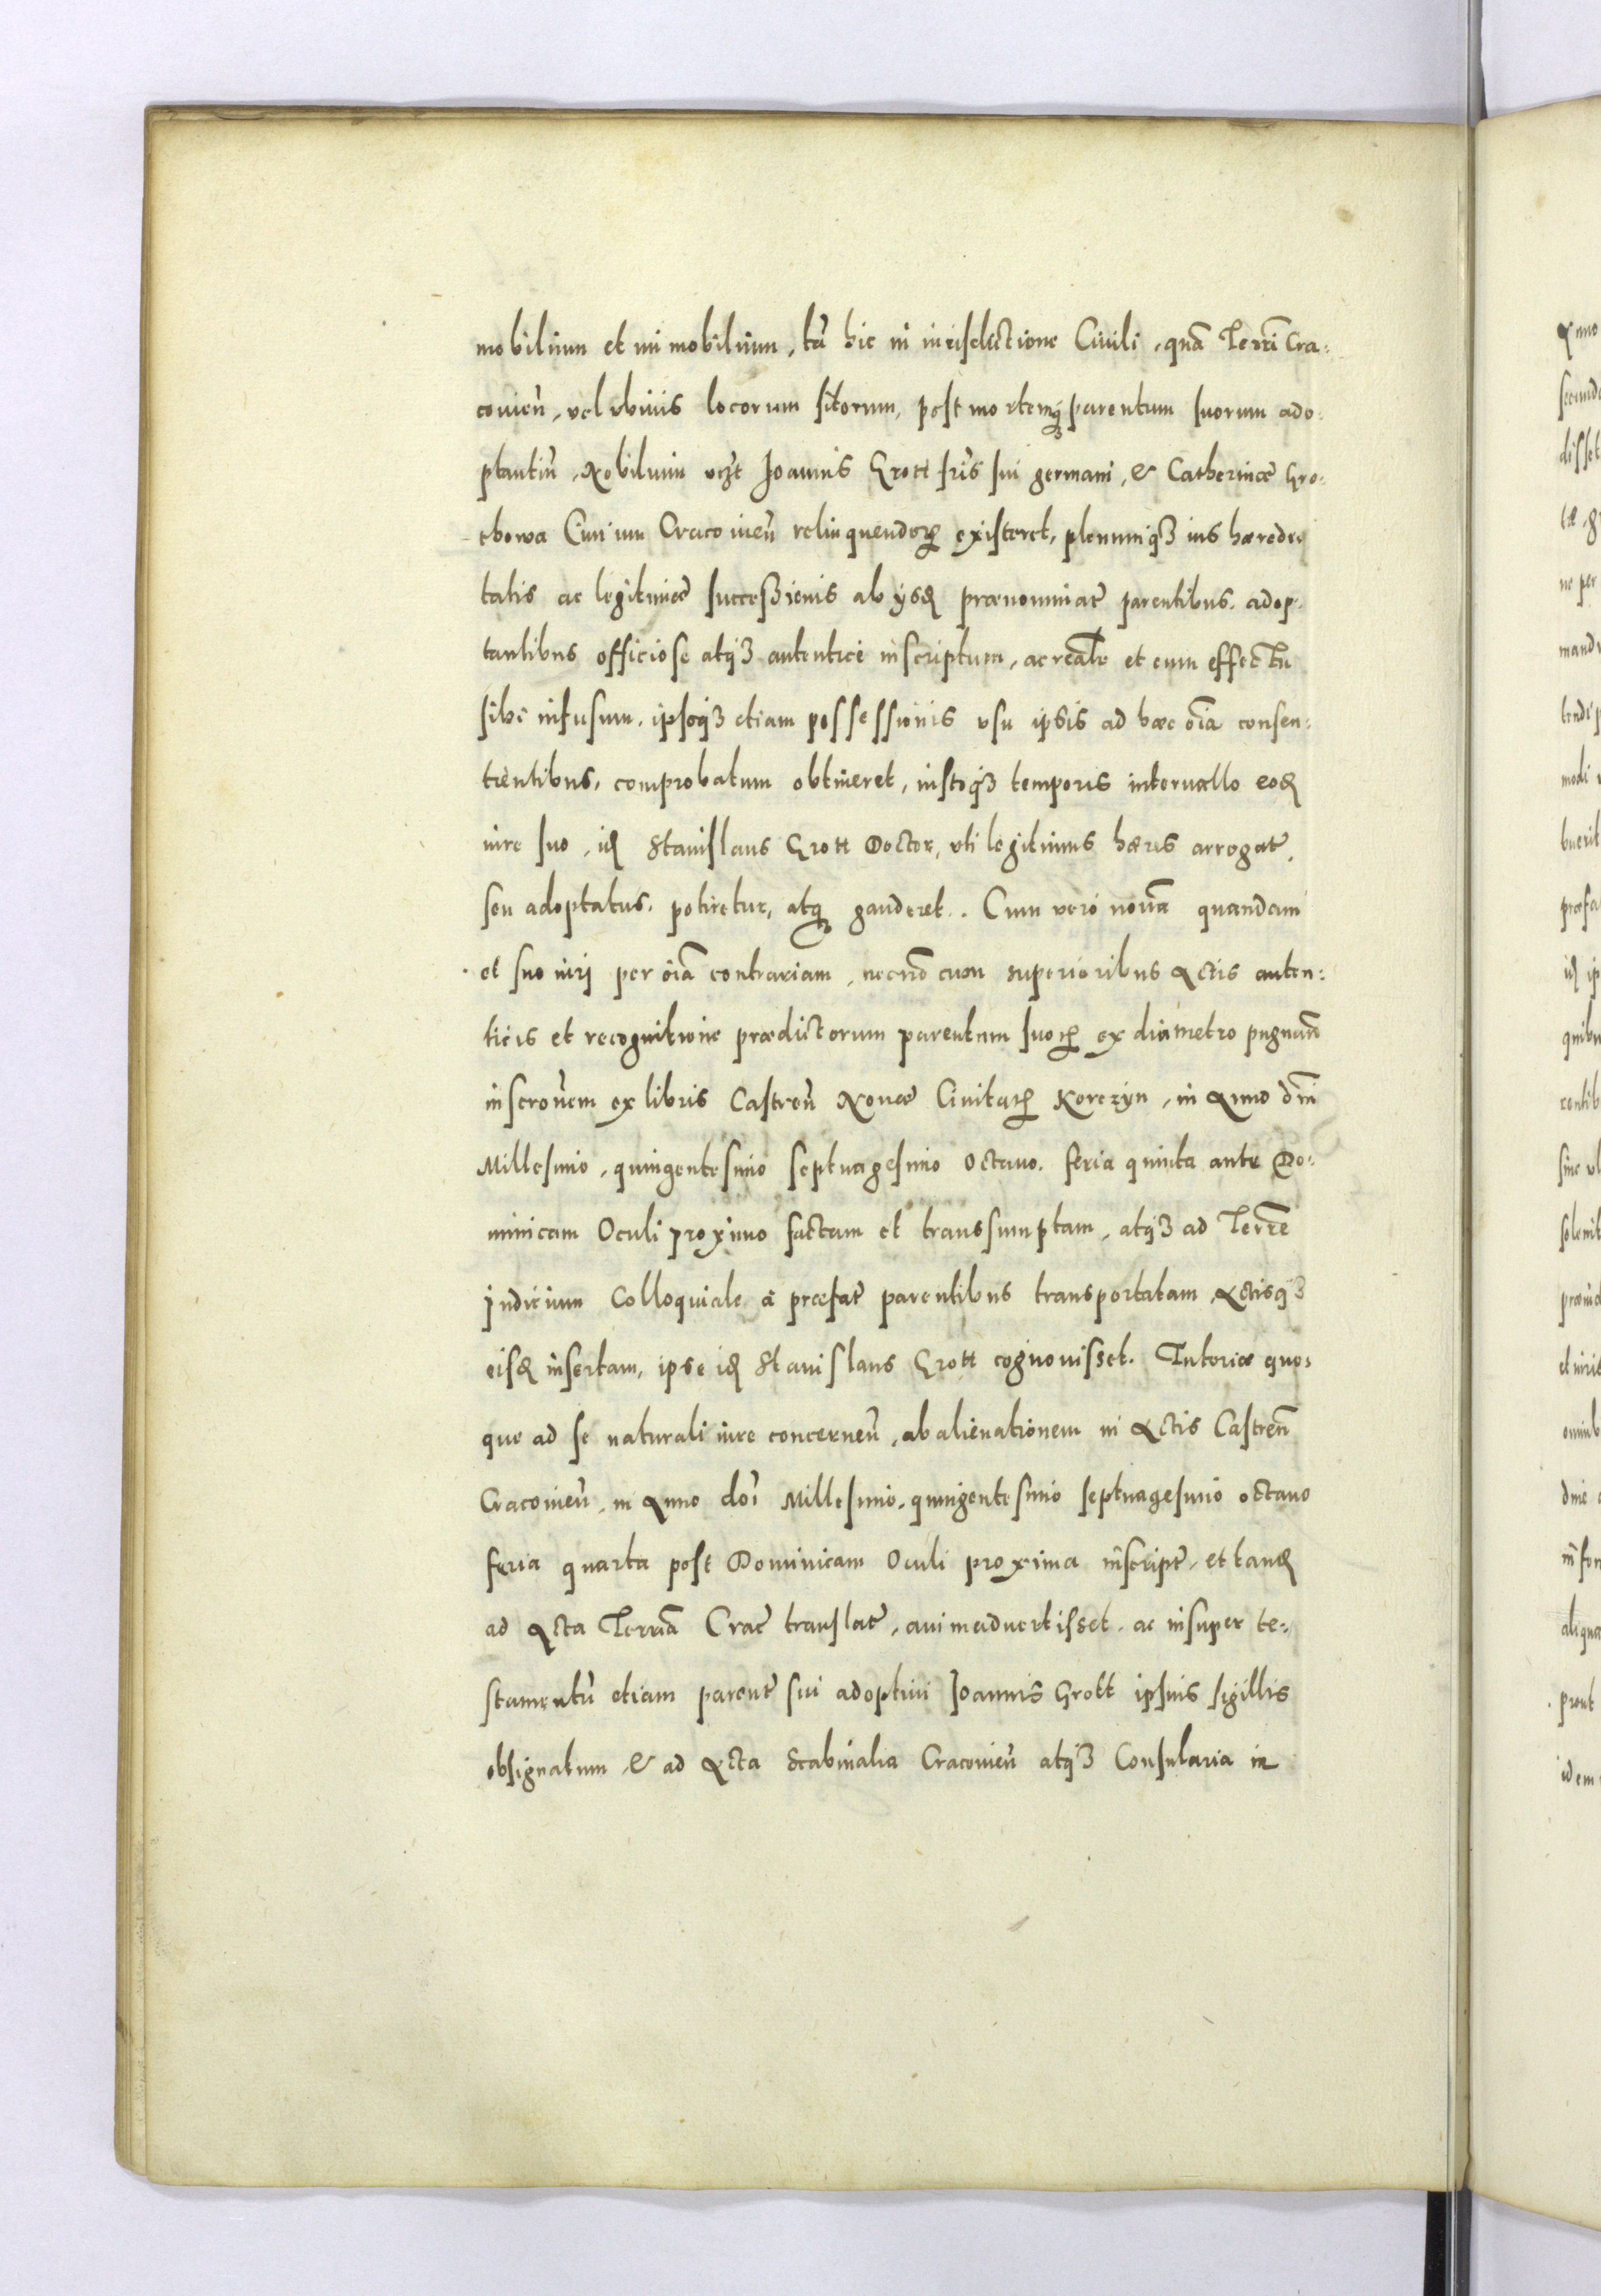 mobilium et im̃mobilium, tã hic in iurisdictione Ciuili, quã Terrĩ Cra-
couieñ, vel vbiuis locorum sitorum, post mortemq́ꝫ parentum suorum ado-
ptantiũ, Nobilium vcꝫt Joannis Grott fr̃is sui germani, & Catherinæ Gro-
chowa Ciuium Cracouieñ relinquendorꝝ existeret, plenumq́ꝫ ius hæredi-
tatis ac legitimæ successionis ab ijsđ prænominat̃ parentibus adop-
tantibus officiose atq́ꝫ autenticè inscriptum, ac reale et cum effectu
sibi infusum, ipsoq́ꝫ etiam possessionis vsu ipsis ad hæc õia consen-
tientibus, comprobatum obtineret, iustoq́ꝫ temporis interuallo eođ
iure suo, iđ Stanislaus Grott Doctor, vti legitimus hæres arrogat̃,
seu adoptatus, potiretur, atq́ꝫ gauderet. Cum verò nouã quandam
et suo iuri per õia contrariam, necnõ cum superioribus Actis auten-
ticis et recognitione prædictorum parentum suorꝝ ex diametro pugnañ
inscrõnem ex libris Castreñ Nouæ Ciuitatꝝ Korczyn, in Anno dñi
Millesimo, quingentesimo septuagesimo octauo, feria quinta ante Do-
minicam Oculi proximo factam et transsumptam, atq́ꝫ ad Terr̃e
Judicium Colloquiale à præfat̃ parentibus transportatam, Actisq́ꝫ
eisđ insertam, ipse iđ Stanislaus Grott cognouisset. Tutoriæ quo-
que ad se naturali iure concerneñ, abalienationem in Actis Castreñ
Cracouieñ, in Anno doĩ Millesimo, quingentesimo septuagesimo octauo
feria quarta post Dominicam Oculi proxima inscript̃, et tanđ
ad Acta Terrĩa Crac̃ translat̃, animaduertisset, ac insuper te-
stamentũ etiam parent̃ sui adoptiui Joannis Grott ipsius sigillis
obsignatum, & ad Acta Scabinalia Cracouieñ atq́ꝫ Consularia in